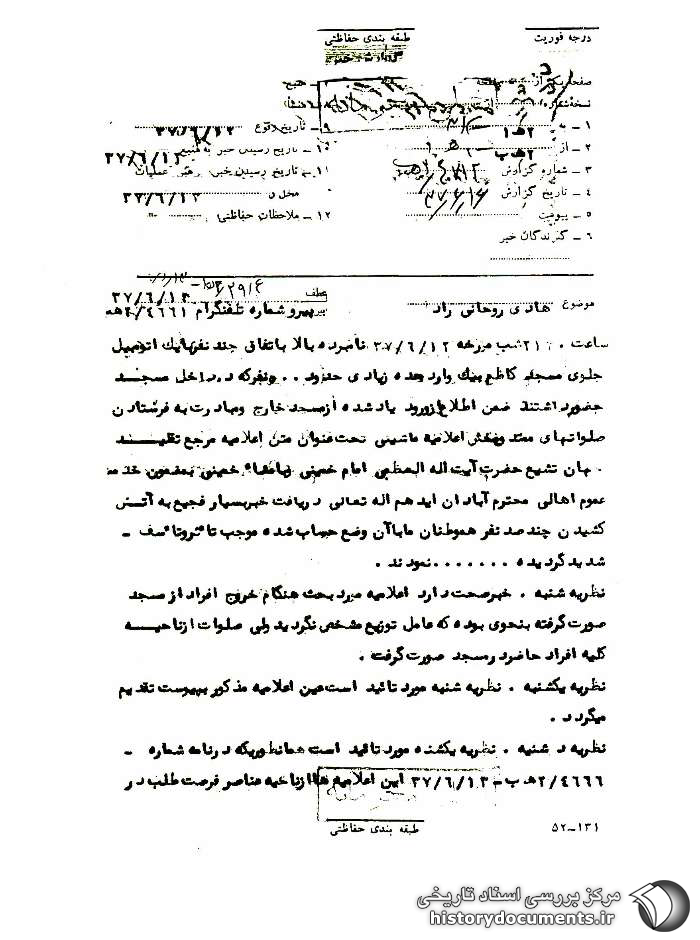 درجه فوریت
طبقه بندی حفاظتی
گزارش خبر
صفحه از صفحه
نسخه شماره از
۱ ـ به ۲ هـ ۱
۲ ـ از ۲ هـ ب
۳ ـ شماره گزارش
۴ ـ تاریخ گزارش
۵ ـ پیوست
۶ ـ گیرندگان خبر
۷ ـ منبع
۸ ـ منشأ
۹ ـ تاریخ وقوع ۳۷/۶/۱۲
۱۰ ـ تاریخ رسیدن خبر به منبع ۳۷/۶/۱۲
۱۱ ـ تاریخ رسیدن خبر به رهبر عملیات
محل ۳۷/۶/۱۳
۱۲ ـ ملاحظات حفاظتی
موضوع هادی روحانی راد
عطف
پیرو شماره تلفنگرام ۲/۴۶۶۱هـ ۳۷/۶/۱۳
ساعت ۲۱۰۰ شب مورخه ۳۷/۶/۱۲ نامبرده بالا باتفاق چند نفر با یک اتومبیل
جلوی مسجد کاظم بیک وارد عده زیادی حدود ۰۰۰ نفر که در داخل مسجد
حضور داشتند ضمن اطلاع از ورود یاد شده از مسجد خارج و مبادرت به فرستادن
صلواتهای ممتد و پخش اعلامیه ماشینی تحت عنوان متن اعلامیه مرجع تقلید
جهان تشیع حضرت آیت اله العظمی امام خمینی بامضاء خمینی بمضمون خدمت
عموم اهالی محترم آبادان ایدهم اله تعالی دریافت خبر بسیار فجیع به آتش
کشیدن چند صد نفر هموطنان ما با آن وضع حساب شده موجب تاثر و تاسف ـ
شدید گردیده ۰۰۰۰۰۰۰ نمودند .
نظریه شنبه . خبر صحت دارد اعلامیه مورد بحث هنگام خروج افراد از مسجد
صورت گرفته بنحوی بوده که عامل توزیع مشخص نگردید ولی صلوات از ناحیه
کلیه افراد حاضر در مسجد صورت گرفت .
نظریه یکشنبه . نظریه شنبه مورد تائید است عین اعلامیه مذکور بپیوست تقدیم
میگردد .
نظریه دوشنبه . نظریه یکشنبه مورد تائید است همانطوریکه در نامه شماره ـ
۲/۴۶۶۶ هـ ب ـ ۳۷/۶/۱۳ این اعلامیه ها از ناحیه عناصر فرصت طلب در
طبقه بندی حفاظتی
۵۲ـ۱۳۱
مرکز بررسی اسناد تاریخی
historydocuments.ir